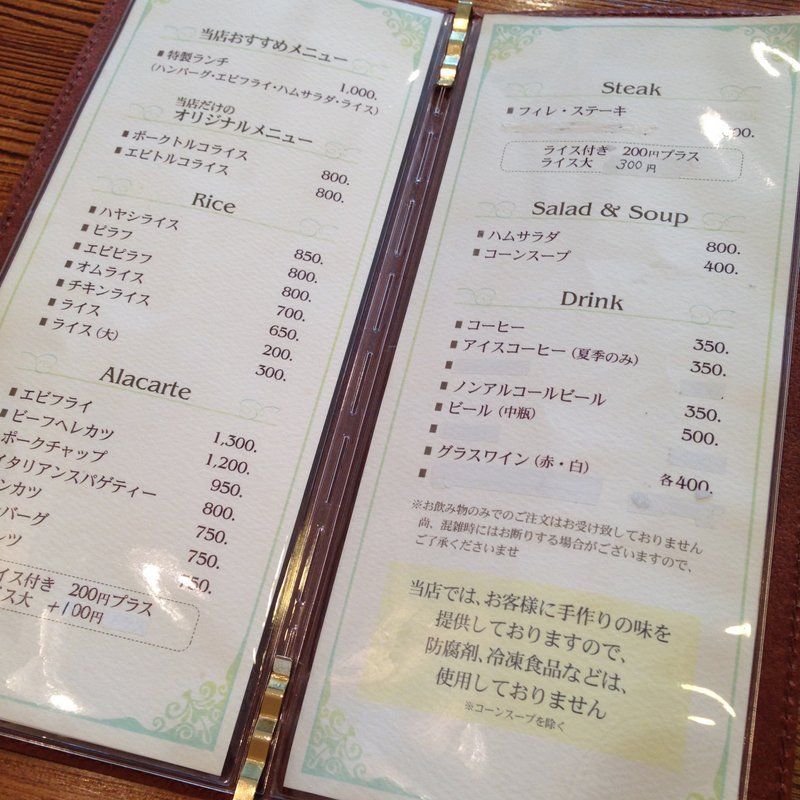 当店おすすめメニュー
■ 特製ランチ 1,000.
（ハンバーグ・エビフライ・ハムサラダ・ライス）
当店だけの
オリジナルメニュー
■ ポークトルコライス 800.
■ エビトルコライス 800.
Rice
■ ハヤシライス 850.
■ ピラフ 800.
■ エビピラフ 800.
■ オムライス 700.
■ チキンライス 650.
■ ライス 200.
■ ライス（大） 300.
Alacarte
■ エビフライ 1,300.
■ ビーフヘレカツ 1,200.
ポークチャップ 950.
イタリアンスパゲティー 800.
ンカツ 750.
バーグ 750.
ツ 750.
イス付き 200円プラス
イス大 +100円
Steak
■ フィレ・ステーキ
00.
ライス付き 200円プラス
ライス大 300円
Salad & Soup
■ ハムサラダ 800.
■ コーンスープ 400.
Drink
■ コーヒー 350.
■ アイスコーヒー（夏季のみ） 350.
■ ノンアルコールビール 350.
■ ビール（中瓶） 500.
■ グラスワイン（赤・白） 各400.
※お飲み物のみでのご注文はお受け致しておりません
尚、混雑時にはお断りする場合がございますので、
ご了承くださいませ
当店では、お客様に手作りの味を
提供しておりますので、
防腐剤、冷凍食品などは、
使用しておりません
※コーンスープを除く